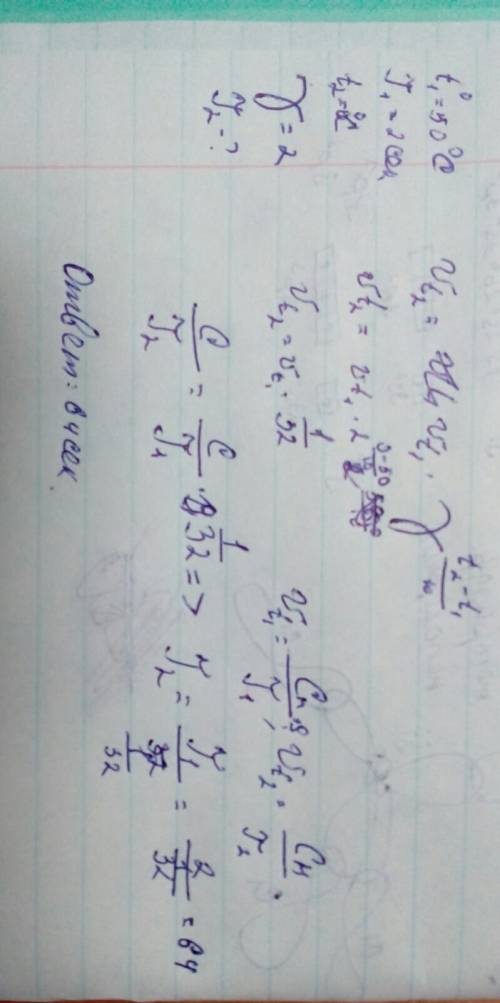 t₁° = 50°C
τ₁ = 2 сек
t₂ = 0°C
γ = 2
τ₂ - ?
v t₂ = v t₁ · γ^((t₂ - t₁)/10)
v t₂ = v t₁ · 2^((0-50)/10)
v t₂ = v t₁ · 1/32
v t₁ = Cн/τ₁ ; v t₂ = Cн/τ₂ .
C/τ₂ = C/τ₁ · 1/32 => τ₂ = τ₁/(1/32) = 2/(1/32) = 64
Ответ: 64 сек.